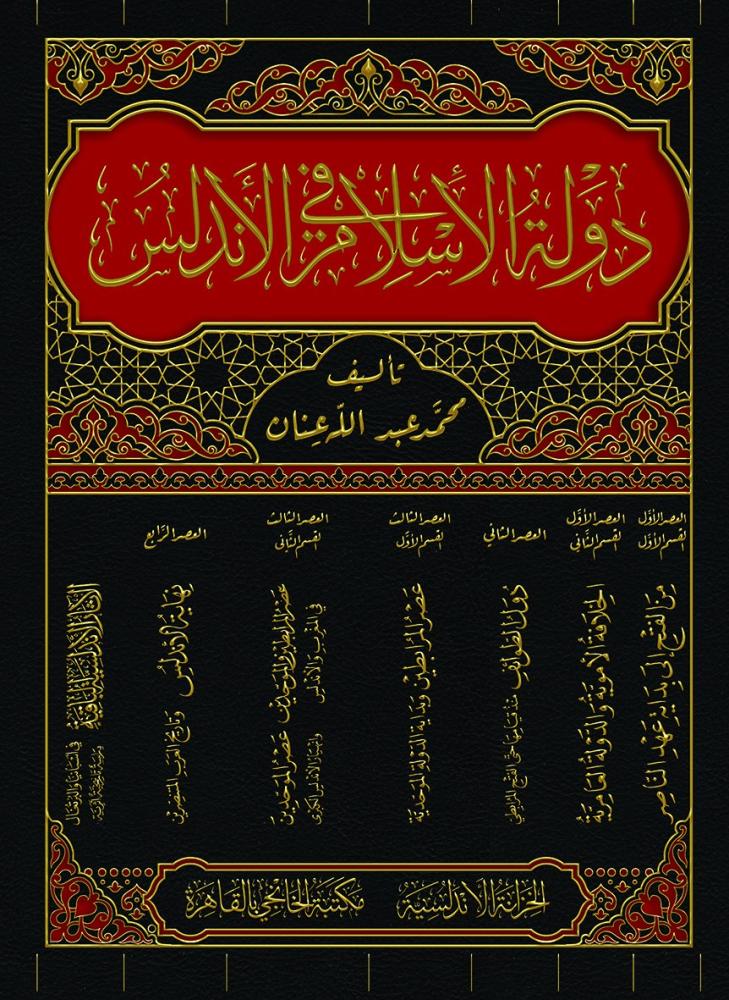 دَوْلَةُ الإِسْلامِ فِي الأَنْدَلُسِ
تأليف
محمَّد عبد اللّه عِنان
العصر الأوَّل
القسم الأوَّل
مِنَ الفَتْحِ إلَى بِدَايَةِ عَهْدِ النَّاصِرِ
العصر الأوَّل
القسم الثَّاني
الخِلَافَةُ الأُمَوِيَّةُ وَالدَّوْلَةُ العَامِرِيَّةُ
العصر الثاني
دُوَلُ الطَّوَائِفِ
منذ قيامها حتى الفتح المرابطي
العصر الثالث
القسم الأوَّل
عَصْرُ المُرَابِطِينَ وبداية الدولة الموحدية
العصر الثالث
القسم الثَّاني
عَصْرُ المُرَابِطِينَ وَالمُوَحِّدِينَ
في المغرب والأندلس
عَصْرُ المُوَحِّدِينَ
وانهيار الأندلس الكبرى
العصر الرَّابع
نِهَايَةُ الأَنْدَلُسِ
وَتَارِيخُ العَرَبِ المُتَنَصِّرِينَ
الآثَارُ الأَنْدَلُسِيَّةُ البَاقِيَةُ
في إسبانيا والبرتغال
الخِزَانَةُ الأَنْدَلُسِيَّةُ
مَكتَبَةُ الخَانْجِي بِالقَاهِرَة